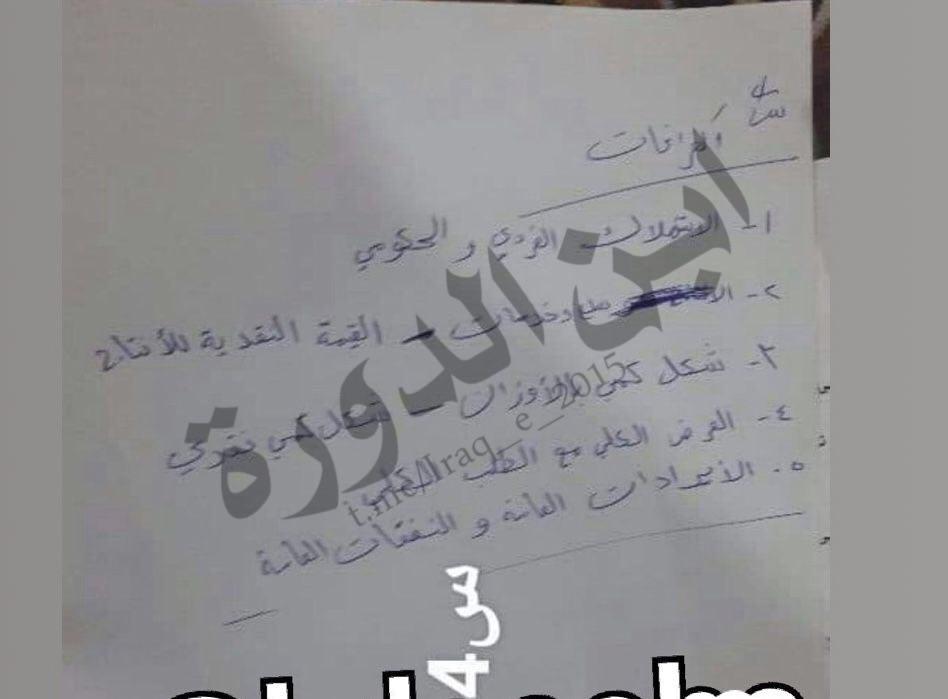 س٤
فراغات
١- الاستهلاك الفردي و الحكومي
٢- سلع وخدمات - القيمة النقدية للأنتاج
٣- شكل كمي بالأوزان - شكل كمي نقدي
٤- العرض الكلي مع الطلب الكلي
٥- الأيرادات العامة و النفقات العامة
ابن الدورة
t.me/Iraq_e_2015
س4